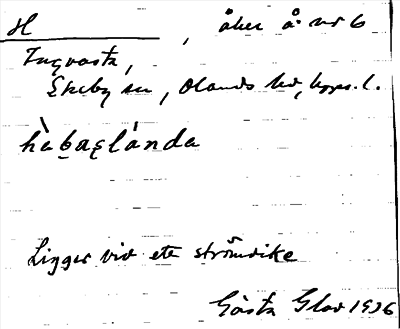 H , åker å nr 6
Ingvasta,
Ekeby sn, Olands hd, Upps. l.
hàbaɛlànda
Ligger vid ett strömdike
Gösta Glad 1936